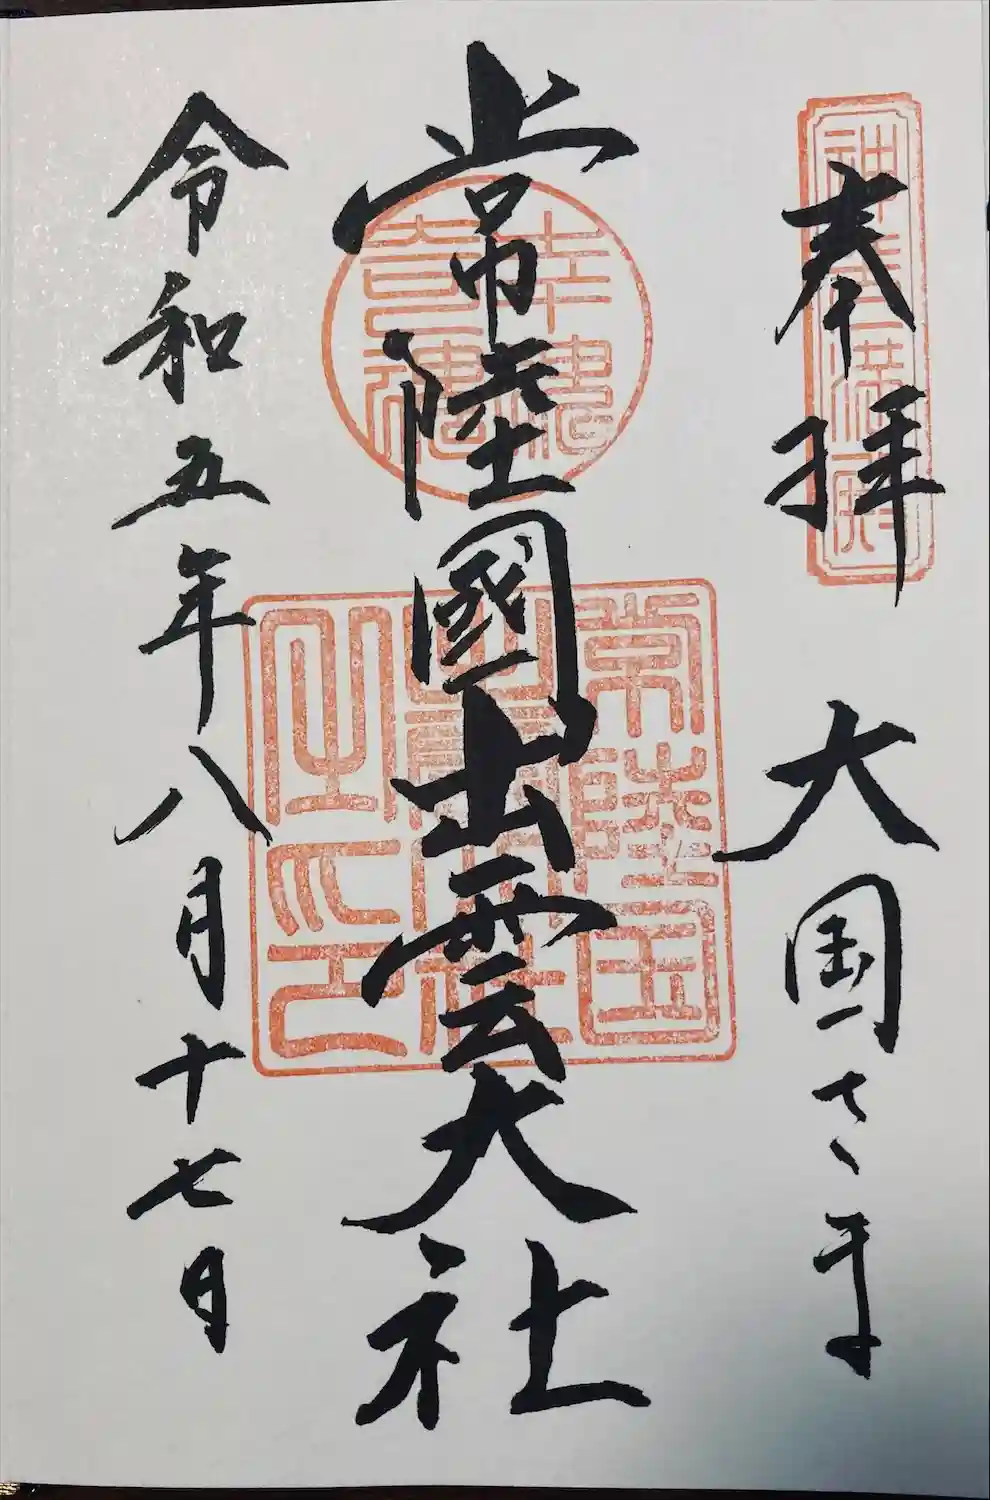 奉拝 大国さま
常陸國出雲大社
令和五年八月十七日
幸魂
奇魂
常陸国
出雲大社
之印